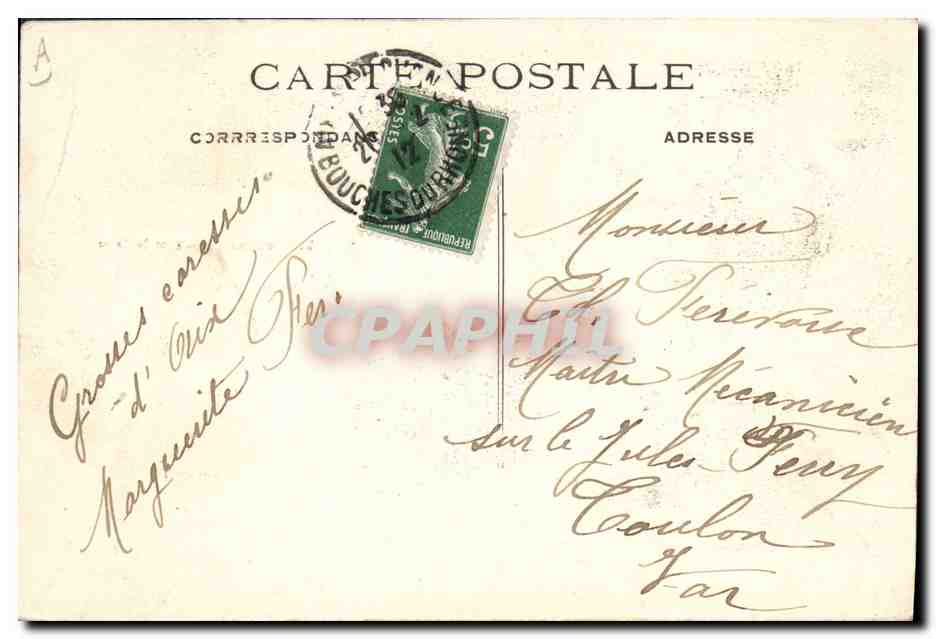 A
CARTE POSTALE
CORRRESPONDANCE
ADRESSE
BOUCHES DU RHONE
12
5
POSTES
REPUBLIQUE
Grosses caresses.
d'Aix
Marguerite
Monsieur
Ch.
Maitre Mécanicien
sur le Jules Ferry
Toulon
Var
CPAPHIL